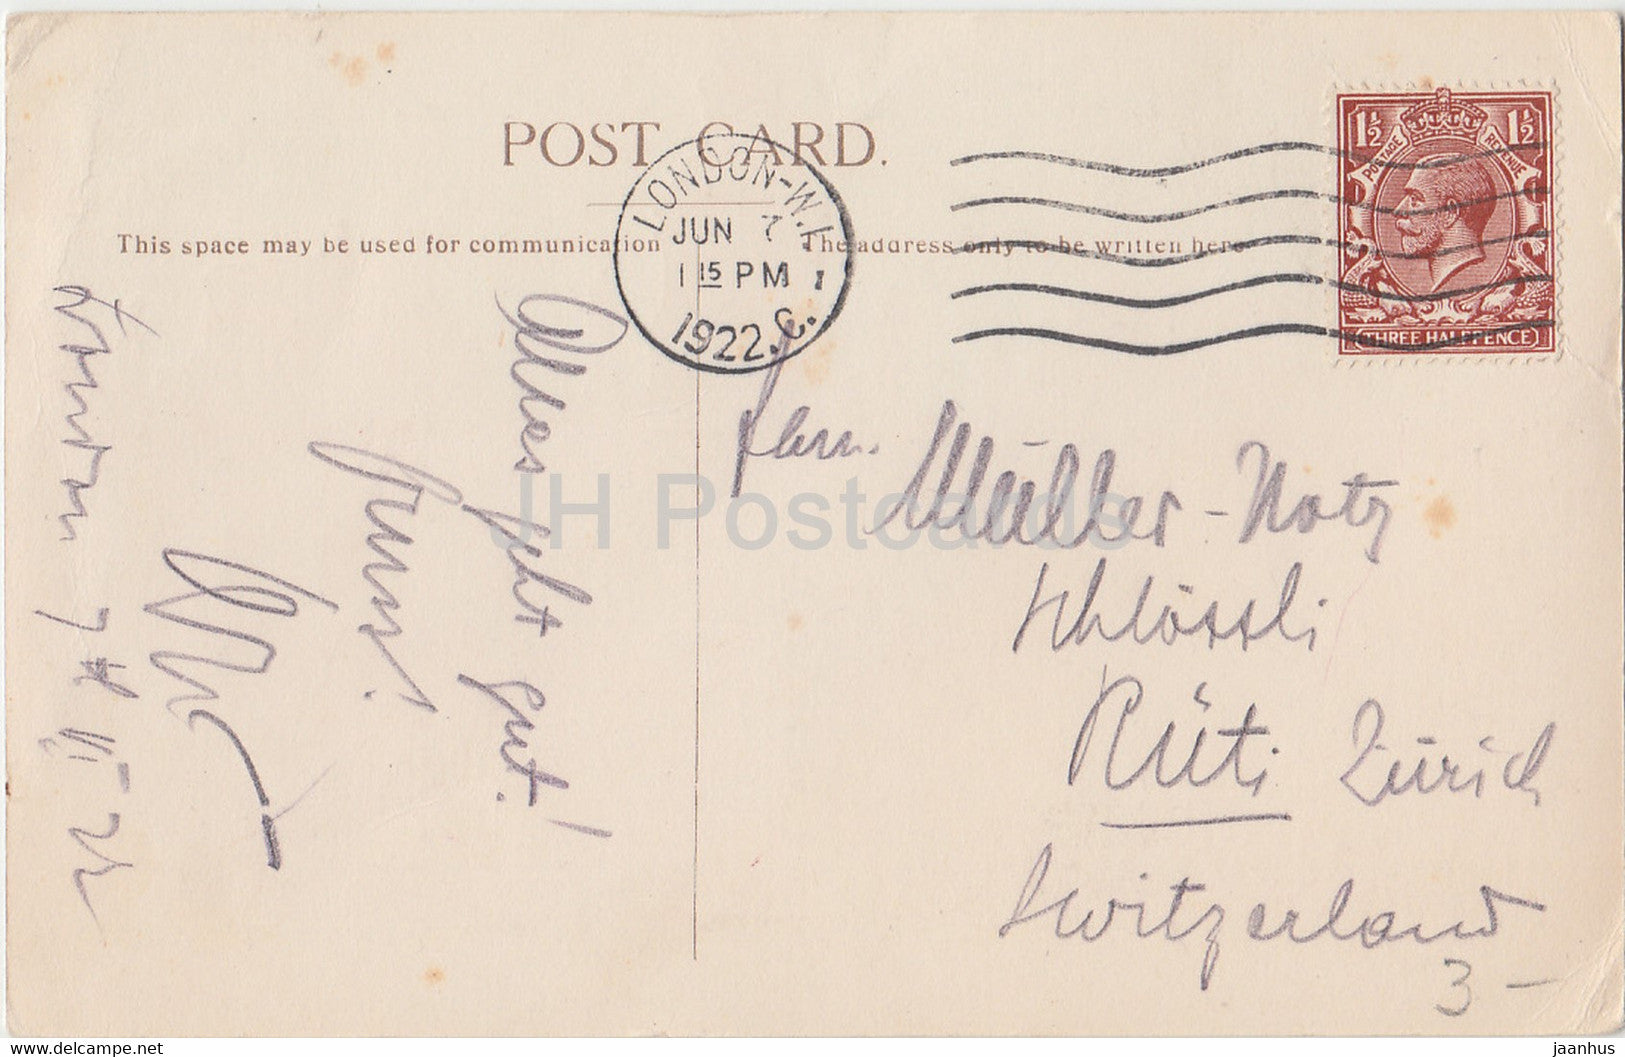 POST CARD.
This space may be used for communication
The address only to be written here
LONDON-W.1.
JUN 7
1 15 PM
1922.C.
1½ 1½
POSTAGE REVENUE
THREE HALFPENCE
Alles geht gut!
London 7 VI 22
Fam. Müller-Notz
Schlössli
Rüti Zürich
Switzerland
3 –
JH Postcards
www.delcampe.net
jaanhus